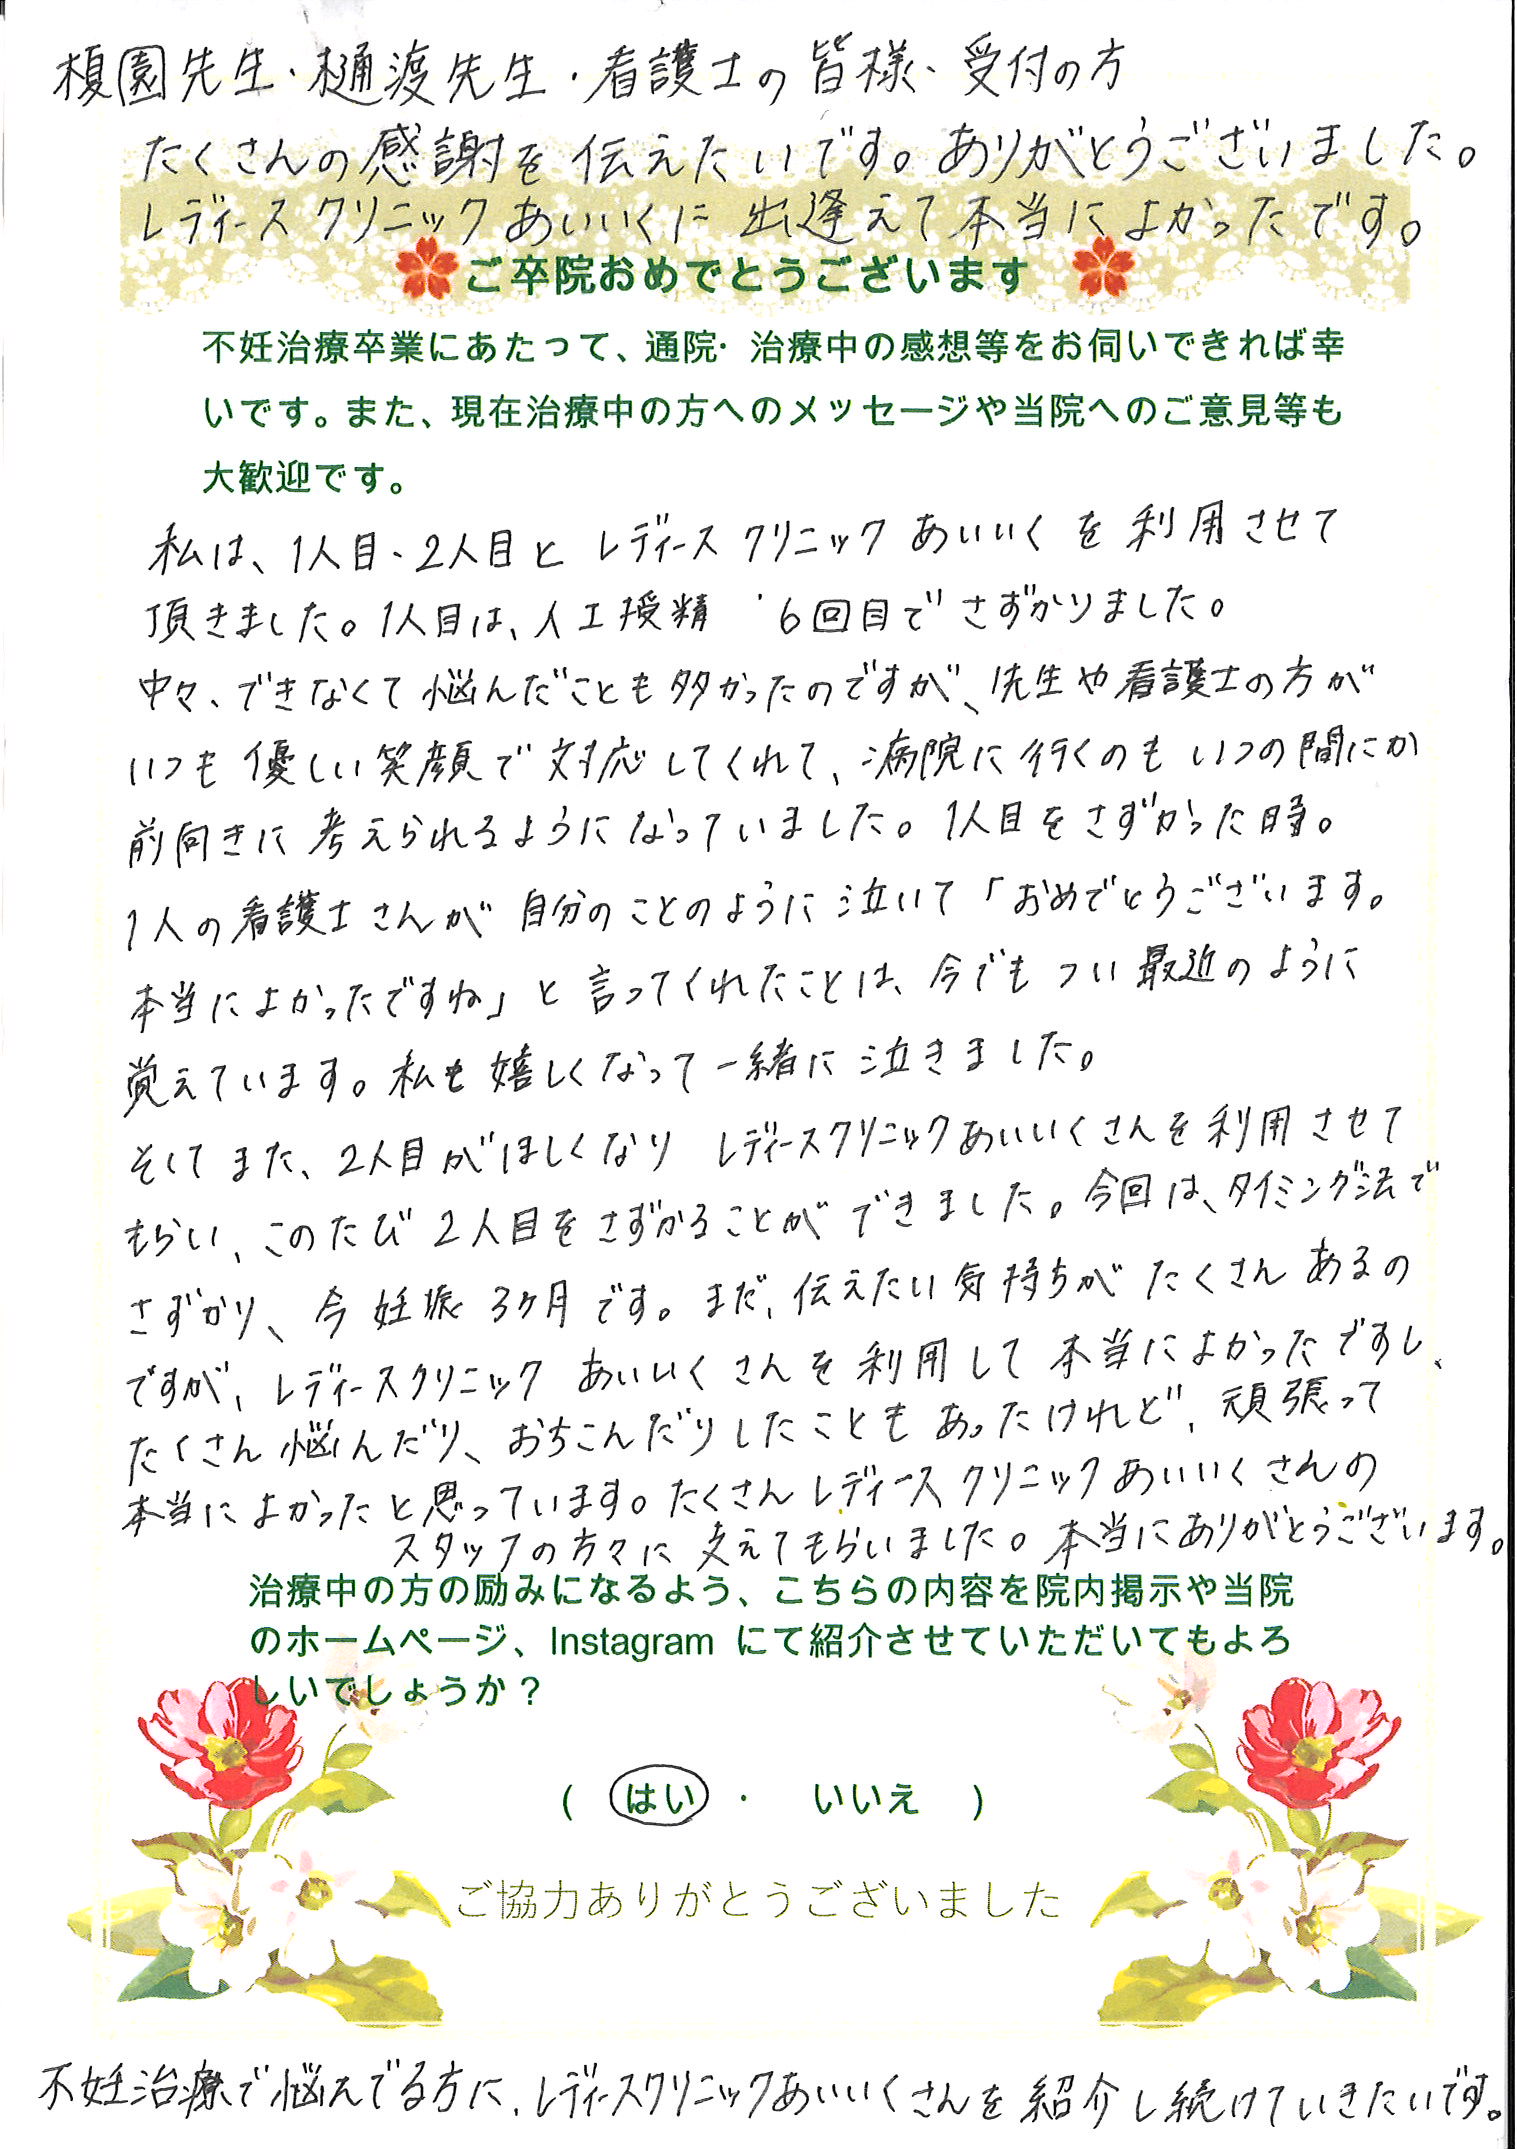 榎園先生・樋渡先生・看護士の皆様、受付の方
たくさんの感謝を伝えたいです。ありがとうございました。
レディースクリニックあいいくに出逢えて本当によかったです。
ご卒院おめでとうございます
不妊治療卒業にあたって、通院・治療中の感想等をお伺いできれば幸
いです。また、現在治療中の方へのメッセージや当院へのご意見等も
大歓迎です。
私は、1人目・2人目とレディースクリニックあいいくを利用させて
頂きました。1人目は、人工授精 6回目でさずかりました。
中々、できなくて悩んだことも多かったのですが、先生や看護士の方が
いつも優しい笑顔で対応してくれて、病院に行くのもいつの間にか
前向きに考えられるようになっていました。1人目をさずかった時。
1人の看護士さんが自分のことのように泣いて「おめでとうございます。
本当によかったですね」と言ってくれたことは、今でもつい最近のように
覚えています。私も嬉しくなって一緒に泣きました。
そしてまた、2人目がほしくなりレディースクリニックあいいくさんを利用させて
もらい、このたび2人目をさずかることができました。今回は、タイミング法で
さずかり、今妊娠3ヶ月です。まだ、伝えたい気持ちがたくさんあるの
ですが、レディースクリニックあいいくさんを利用して本当によかったですし、
たくさん悩んだり、おちこんだりしたこともあったけれど、頑張って
本当によかったと思っています。たくさんレディースクリニックあいいくさんの
スタッフの方々に支えてもらいました。本当にありがとうございます。
治療中の方の励みになるよう、こちらの内容を院内掲示や当院
のホームページ、Instagram にて紹介させていただいてもよろ
しいでしょうか？
( はい ・ いいえ )
ご協力ありがとうございました
不妊治療で悩んでる方に、レディースクリニックあいいくさんを紹介し続けていきたいです。